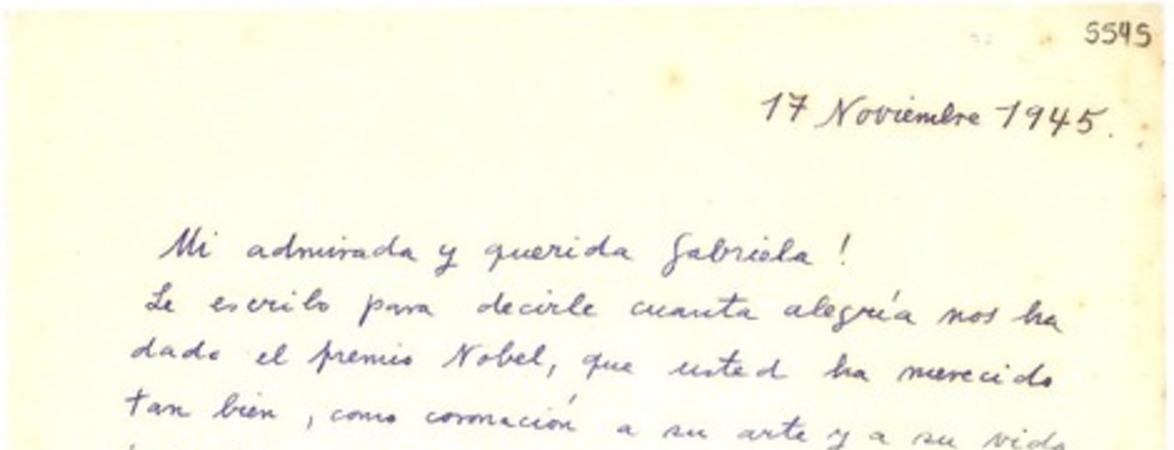 5545
17 Noviembre 1945.
Mi admirada y querida Gabriela!
Le escribo para decirle cuanta alegría nos ha
dado el premio Nobel, que usted ha merecido
tan bien, como coronación a su arte y a su vida